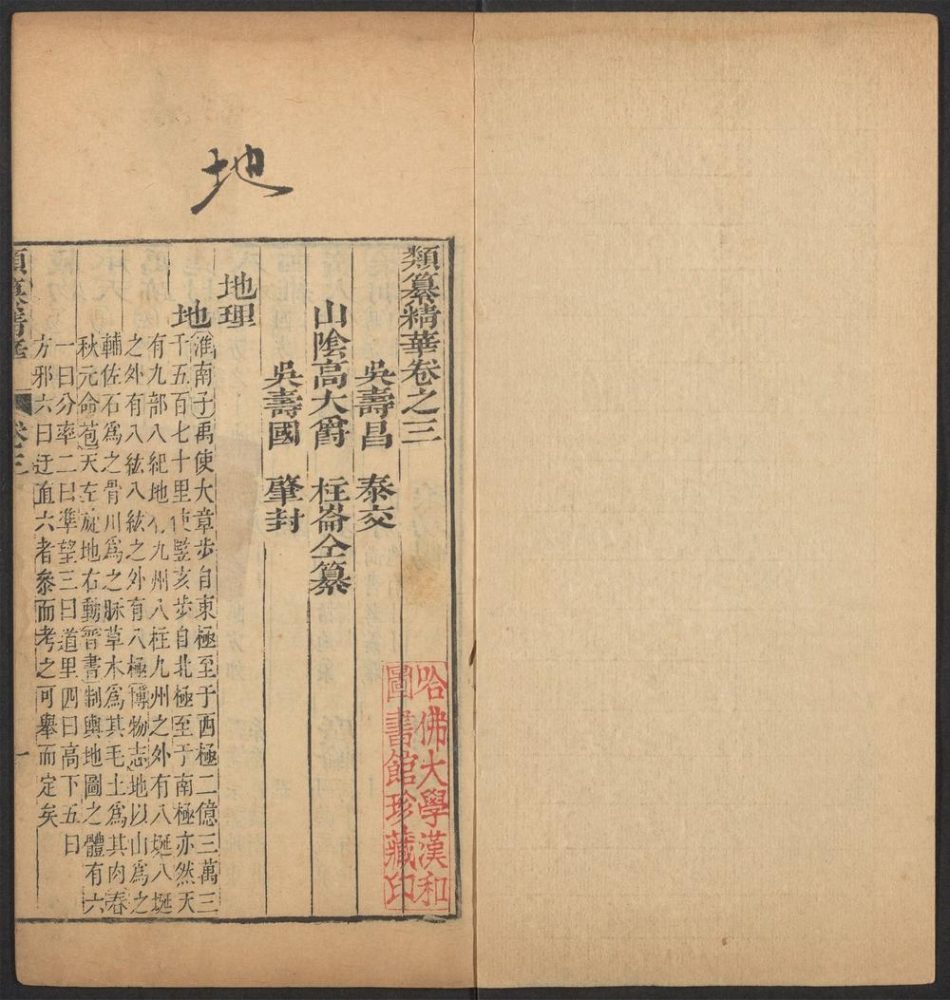 地
類纂精華卷之三
吳壽昌　泰交
山陰高大爵　柱崙仝纂
吳壽國　肇封
地理
地
淮南子禹使大章步自東極至于西極二億三萬三
千五百七十里使豎亥步自北極至于南極亦然天
有九部八紀地有九州八柱九州之外有八埏八埏
之外有八紘八紘之外有八極博物志地以山爲之
輔佐石爲之骨川爲之脉草木爲其毛土爲其肉春
秋元命苞天左旋地右動晉書制輿地圖之體有六
一曰分率二曰準望三曰道里四曰高下五曰
方邪六曰迂直六者叅而考之可舉而定矣
卷三　一
哈佛大學漢和
圖書館珍藏印